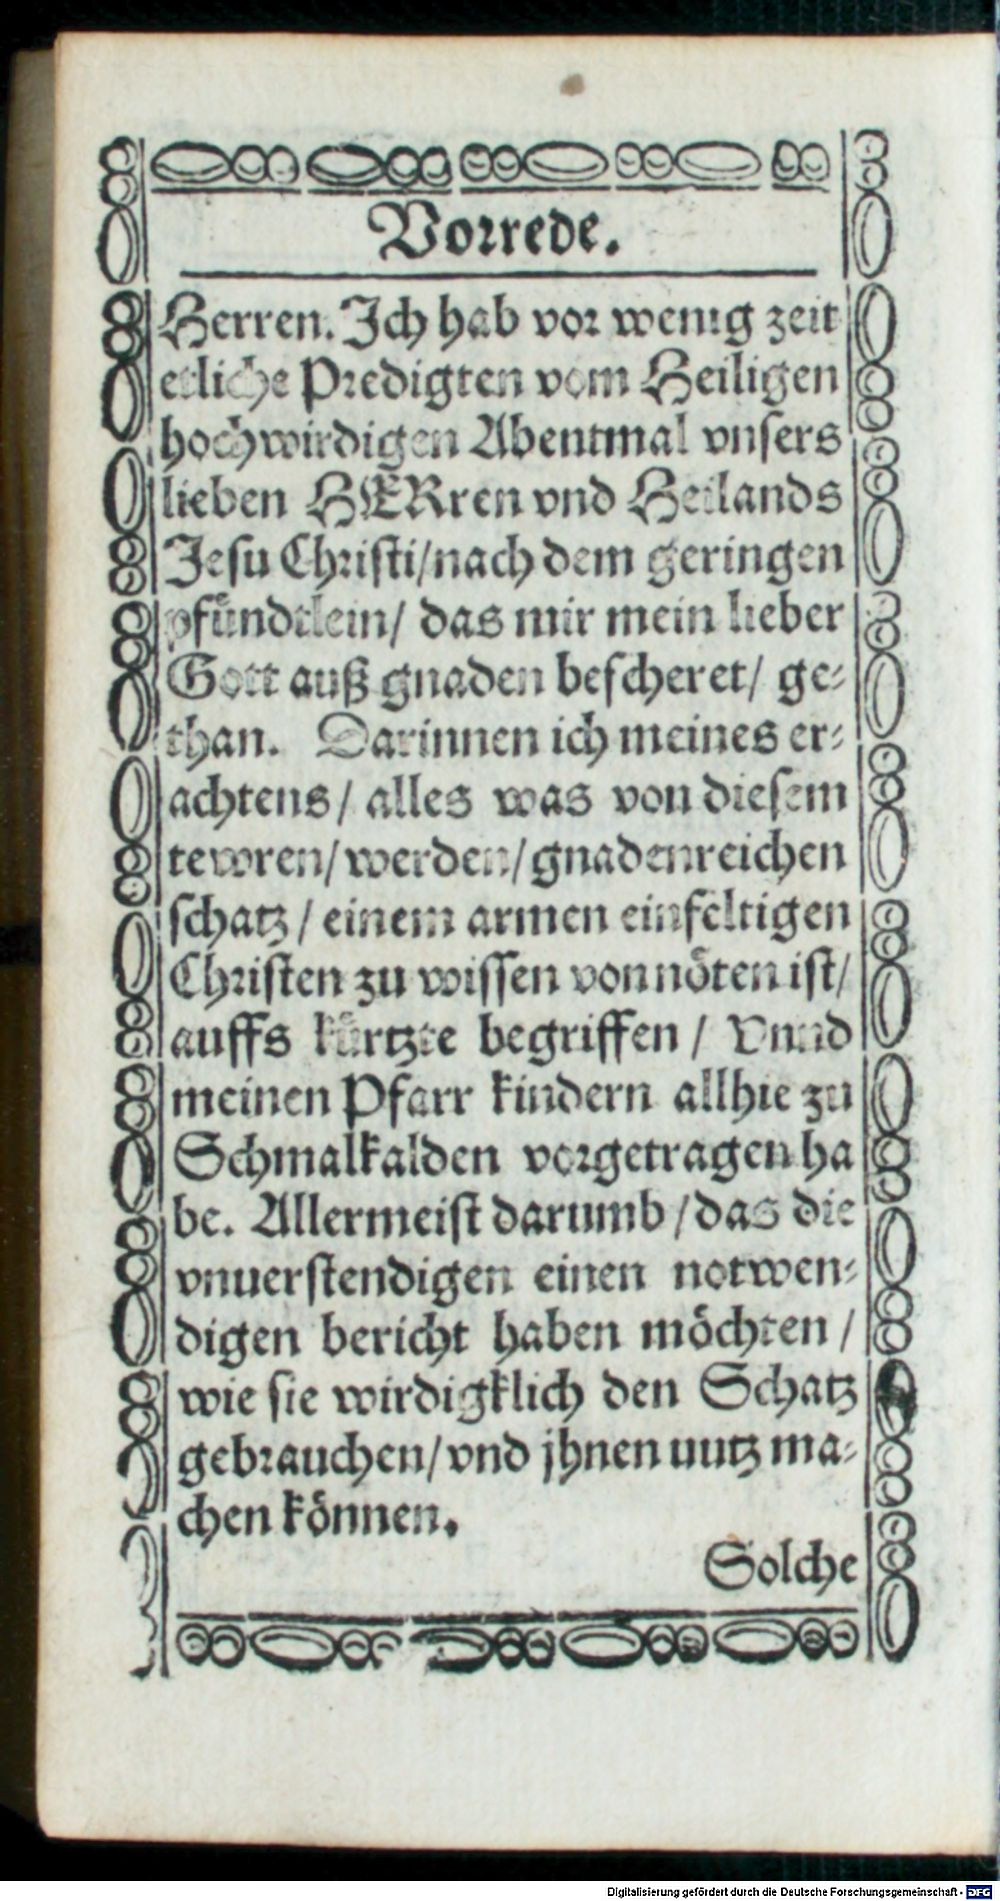 Vorrede.
Herren. Ich hab vor wenig zeit
etliche Predigten vom Heiligen
hochwirdigen Abentmal vnsers
lieben HERren vnd Heilands
Jesu Christi/nach dem geringen
pfündtlein/ das mir mein lieber
Gott auß gnaden bescheret/ ge-
than. Darinnen ich meines er-
achtens/ alles was von diesem
tewren/ werden/ gnadenreichen
schatz/ einem armen einfeltigen
Christen zu wissen von nöten ist/
auffs kürtzte begriffen/ Vnnd
meinen Pfarr kindern allhie zu
Schmalkalden vorgetragen ha
be. Allermeist darumb/das die
vnuerstendigen einen notwen-
digen bericht haben möchten/
wie sie wirdigklich den Schatz
gebrauchen/vnd jhnen uutz ma-
chen können.
Solche
Digitalisierung gefördert durch die Deutsche Forschungsgemeinschaft - DFG